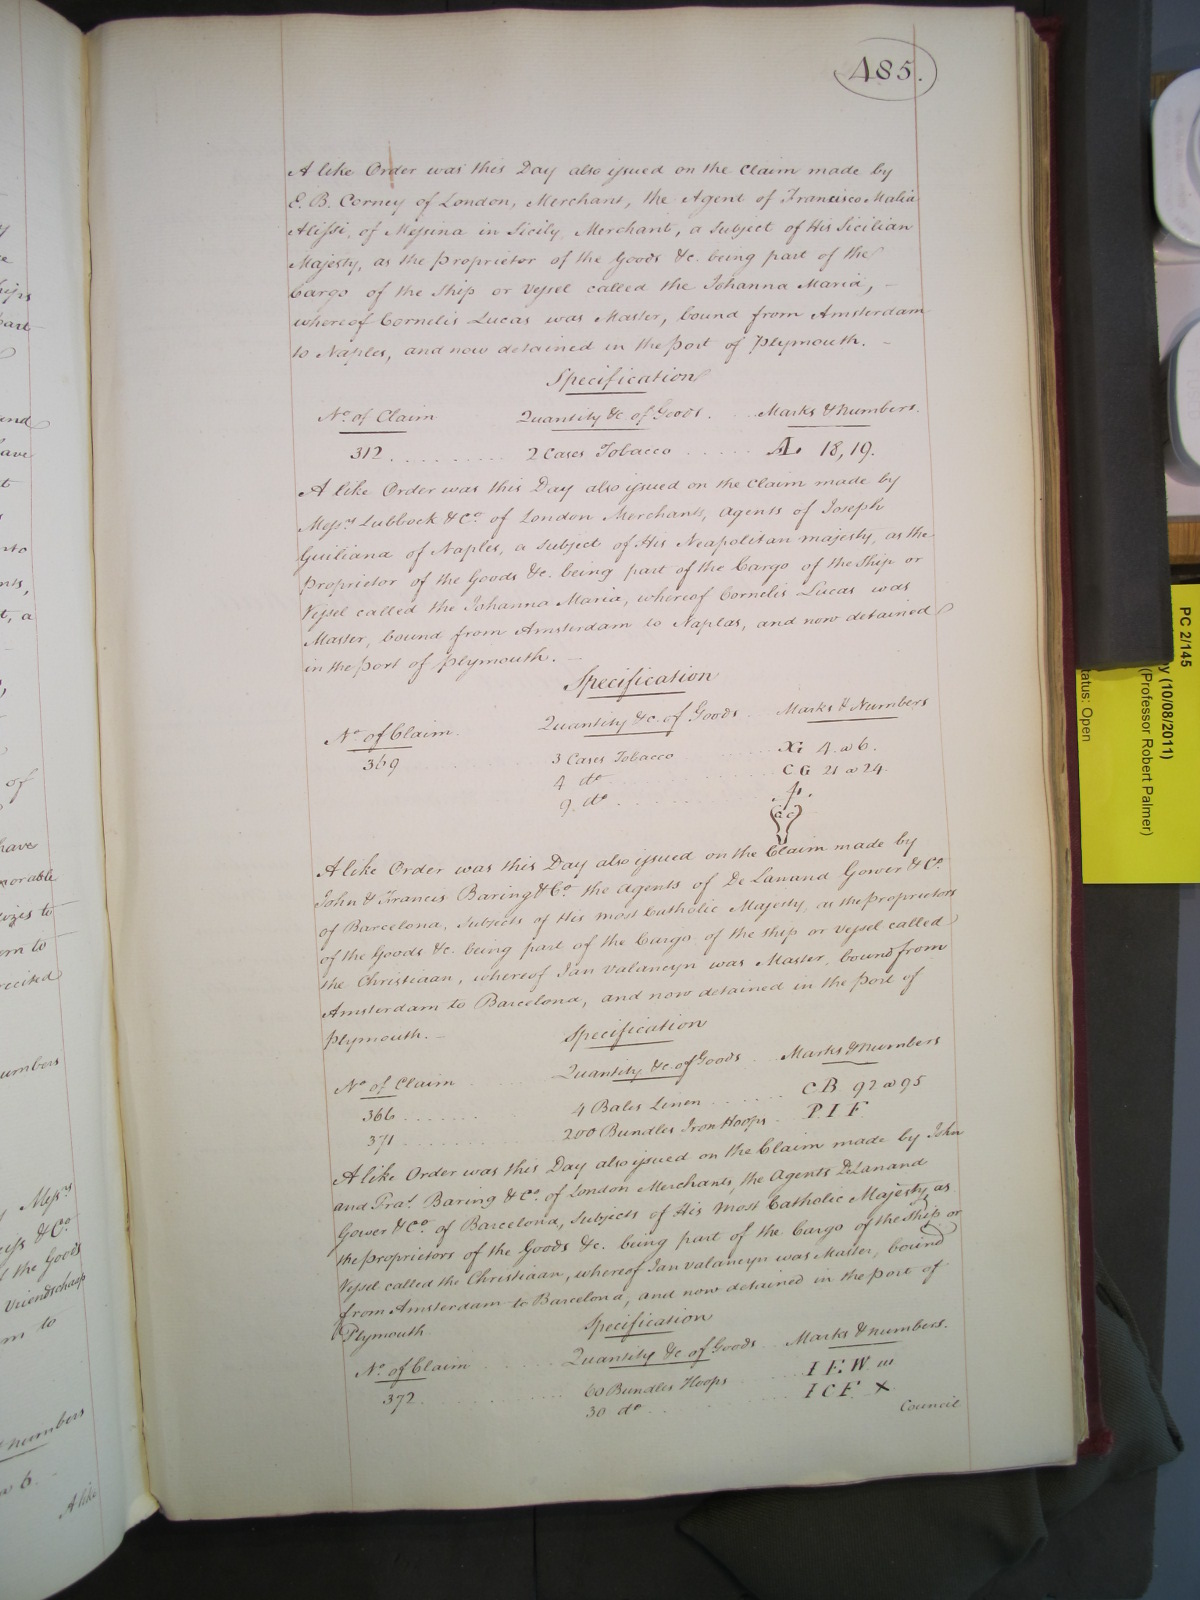 485.
A like Order was this Day also issued on the Claim made by
E. B. Corney of London, Merchant, the Agent of Francisco Malia
Alissi, of Messina in Sicily, Merchant, a Subject of His Sicilian
Majesty, as the Proprietor of the Goods &c. being part of the
Cargo of the Ship or Vessel called the Johanna Maria, –
whereof Cornelis Lucas was Master, bound from Amsterdam
to Naples, and now detained in the Port of Plymouth. –
Specification
No. of Claim Quantity &c. of Goods. Marks & Numbers.
312 2 Cases Tobacco 18, 19.
A like Order was this Day also issued on the Claim made by
Messrs Lubbock & Co. of London Merchants, Agents of Joseph
Guiliana of Naples, a Subject of His Neapolitan majesty, as the
Proprietor of the Goods &c. being part of the Cargo of the Ship or
Vessel called the Johanna Maria, whereof Cornelis Lucas was
Master, bound from Amsterdam to Naples, and now detained
in the Port of Plymouth. –
Specification
No. of Claim Quantity &c. of Goods Marks & Numbers
369 3 Cases Tobacco 4 a 6.
4 do CG 21 a 24
9 do
A like Order was this Day also issued on the Claim made by
John & Francis Baring & Co. the Agents of De Lanand Gower & Co.
of Barcelona, Subjects of His most Catholic Majesty, as the Proprietors
of the Goods &c. being part of the Cargo of the Ship or Vessel called
the Christiaan, whereof Jan Valancyn was Master, bound from
Amsterdam to Barcelona, and now detained in the Port of
Plymouth. –
Specification
No. of Claim Quantity &c. of Goods Marks & Numbers
366 4 Bales Linen CB 92 a 95
371 200 Bundles Iron Hoops P I F
A like Order was this Day also issued on the Claim made by John
and Fras. Baring & Co. of London Merchants, the Agents De Lanand
Gower & Co. of Barcelona, Subjects of His Most Catholic Majesty, as
the Proprietors of the Goods &c. being part of the Cargo of the Ship or
Vessel called the Christiaan, whereof Jan Valancyn was Master, bound
from Amsterdam to Barcelona, and now detained in the Port of
Plymouth
Specification
No. of Claim Quantity &c of Goods Marks & Numbers.
372 60 Bundles Hoops I F W
30 do I C F X
Council
PC 2/145
(10/08/2011)
(Professor Robert Palmer)
Status: Open